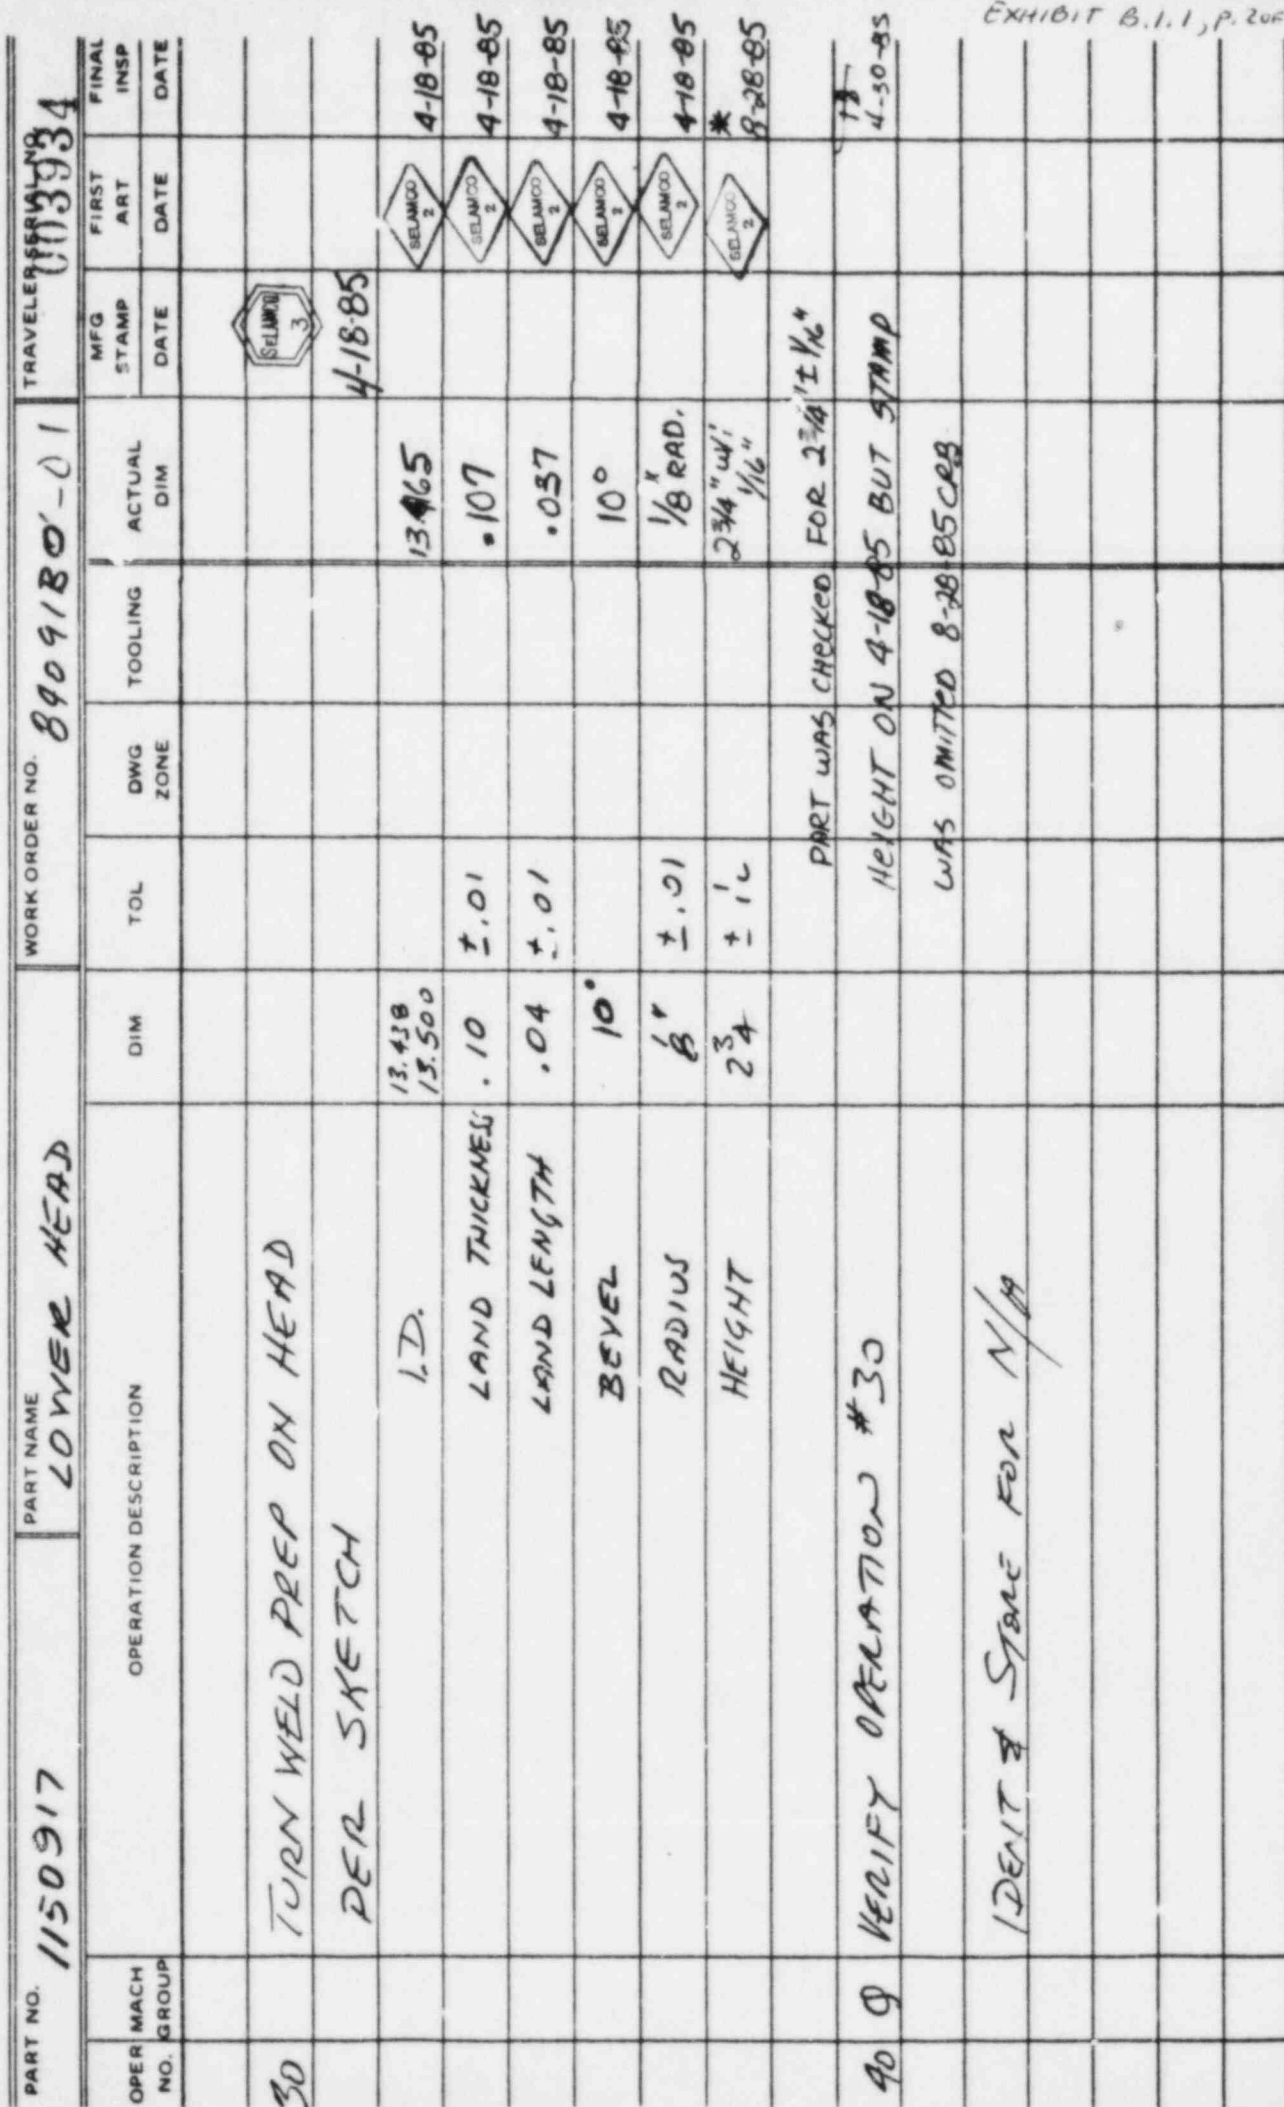 EXHIBIT B.1.1, P. 2 OF
PART NO. 1150917
PART NAME LOWER HEAD
WORK ORDER NO. 89091BO-01
TRAVELER SERIAL NO. 003934
OPER NO. MACH GROUP OPERATION DESCRIPTION DIM TOL DWG ZONE TOOLING ACTUAL DIM MFG STAMP DATE FIRST ART DATE FINAL INSP DATE
30 TURN WELD PREP ON HEAD SELAMCO 3
PER SKETCH 4-18-85
I.D. 13.438 13.500 13.465 SELAMCO 2 4-18-85
LAND THICKNESS .10 ±.01 .107 SELAMCO 2 4-18-85
LAND LENGTH .04 ±.01 .037 SELAMCO 2 4-18-85
BEVEL 10° 10° SELAMCO 2 4-18-85
RADIUS 1/8" ±.01 1/8" RAD. SELAMCO 2 4-18-85
HEIGHT 2 3/4 ± 2 3/4" W/I 1/16" SELAMCO 2 * 8-28-85
PART WAS CHECKED FOR 2 3/4" ± 1/16"
40 Q VERIFY OPERATION #30 HEIGHT ON 4-18-85 BUT STAMP 4-30-85
WAS OMITTED 8-28-85 CRB
IDENT & STORE FOR N/A